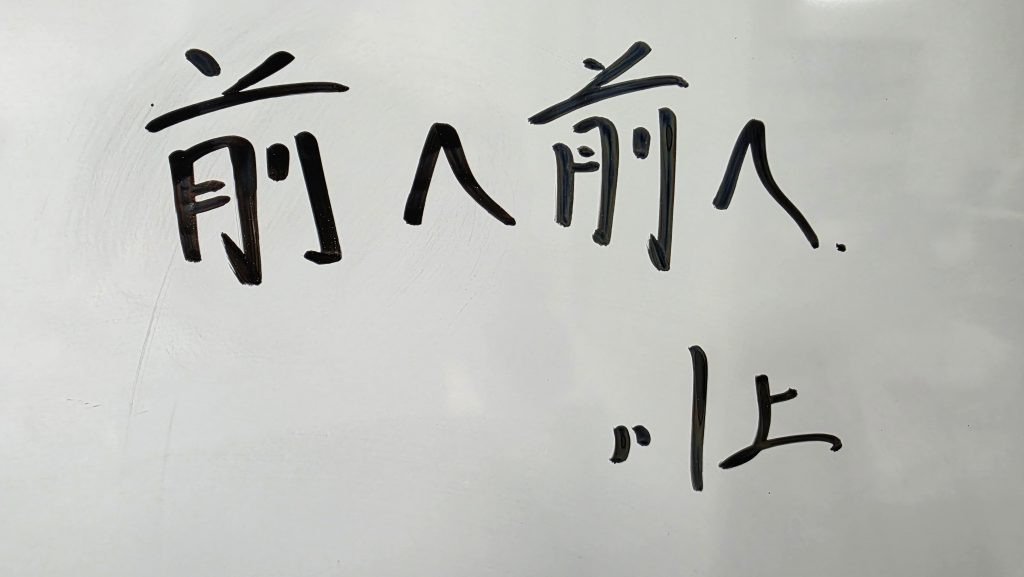 前へ前へ.
小上